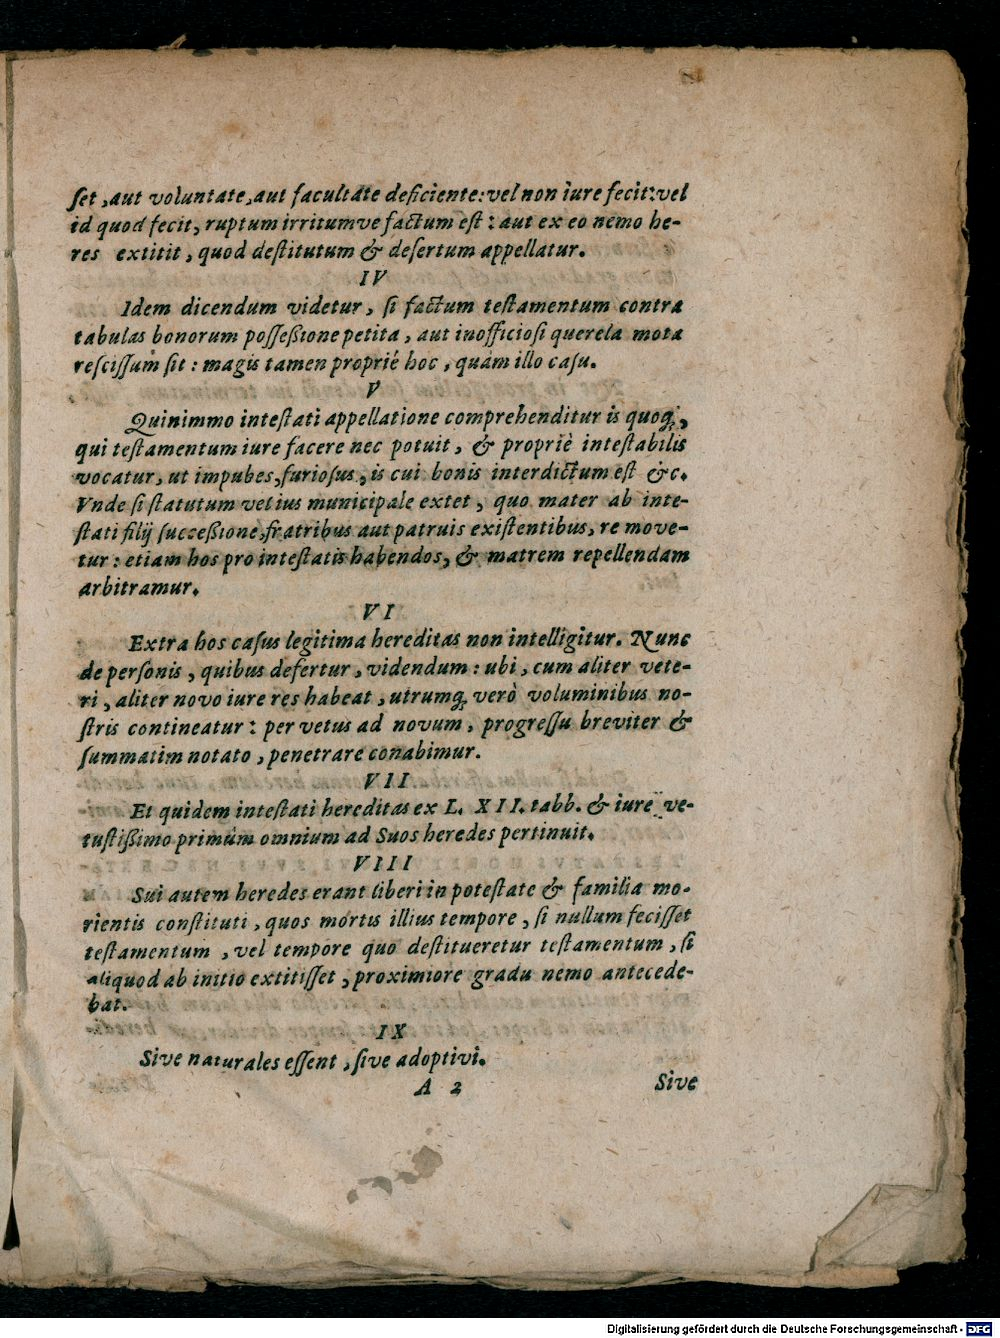 ſet, aut voluntate, aut facultate deficiente: vel non iure fecit: vel
id quod fecit, ruptum irritumve factum eſt: aut ex eo nemo he-
res extitit, quod deſtitutum & deſertum appellatur.
IV
Idem dicendum videtur, ſi factum teſtamentum contra
tabulas bonorum poſſeßione petita, aut inofficioſi querela mota
reſciſſum ſit: magis tamen proprié hoc, quàm illo caſu.
V
Quinimmo inteſtati appellatione comprehenditur is quoq́,
qui teſtamentum iure facere nec potuit, & propriè inteſtabilis
vocatur, ut impubes, furioſus, is cui bonis interdictum eſt &c.
Vnde ſi ſtatutum vel ius municipale extet, quo mater ab inte-
ſtati filij ſucceßione, fratribus aut patruis exiſtentibus, re move-
tur: etiam hos pro inteſtatis habendos, & matrem repellendam
arbitramur.
VI
Extra hos caſus legitima hereditas non intelligitur. Nunc
de perſonis, quibus defertur, videndum: ubi, cum aliter vete-
ri, aliter novo iure res habeat, utrumq́ verò voluminibus no-
ſtris contineatur: per vetus ad novum, progreſſu breviter &
ſummatim notato, penetrare conabimur.
VII
Et quidem inteſtati hereditas ex L. XII. tabb. & iure ve-
tuſtißimo primùm omnium ad Suos heredes pertinuit.
VIII
Sui autem heredes erant liberi in poteſtate & familia mo-
rientis conſtituti, quos mortis illius tempore, ſi nullum feciſſet
teſtamentum, vel tempore quo deſtitueretur teſtamentum, ſi
aliquod ab initio extitiſſet, proximiore gradu nemo antecede-
bat.
IX
Sive naturales eſſent, ſive adoptivi.
A 2 Sive
Digitalisierung gefördert durch die Deutsche Forschungsgemeinschaft - DFG